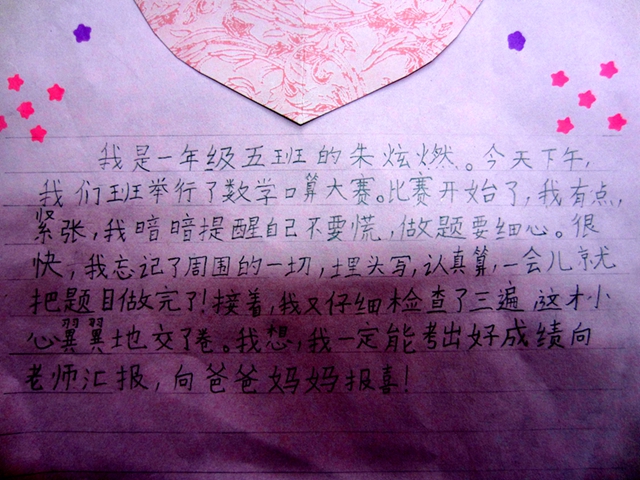 我是一年级五班的朱炫燃。今天下午,
我们班举行了数学口算大赛。比赛开始了,我有点,
紧张,我暗暗提醒自己不要慌,做题要细心。很
快,我忘记了周围的一切,埋头写,认真算,一会儿就
把题目做完了!接着,我又仔细检查了三遍,这才小
心翼翼地交了卷。我想,我一定能考出好成绩向
老师汇报,向爸爸妈妈报喜!